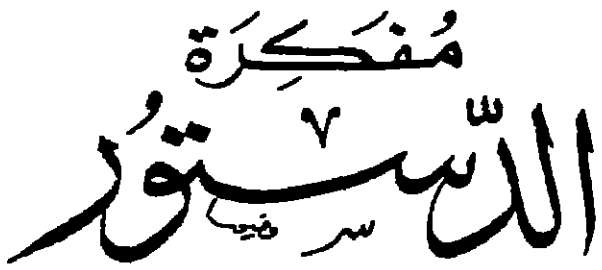 مُفَكِرَة
الدّستورُ